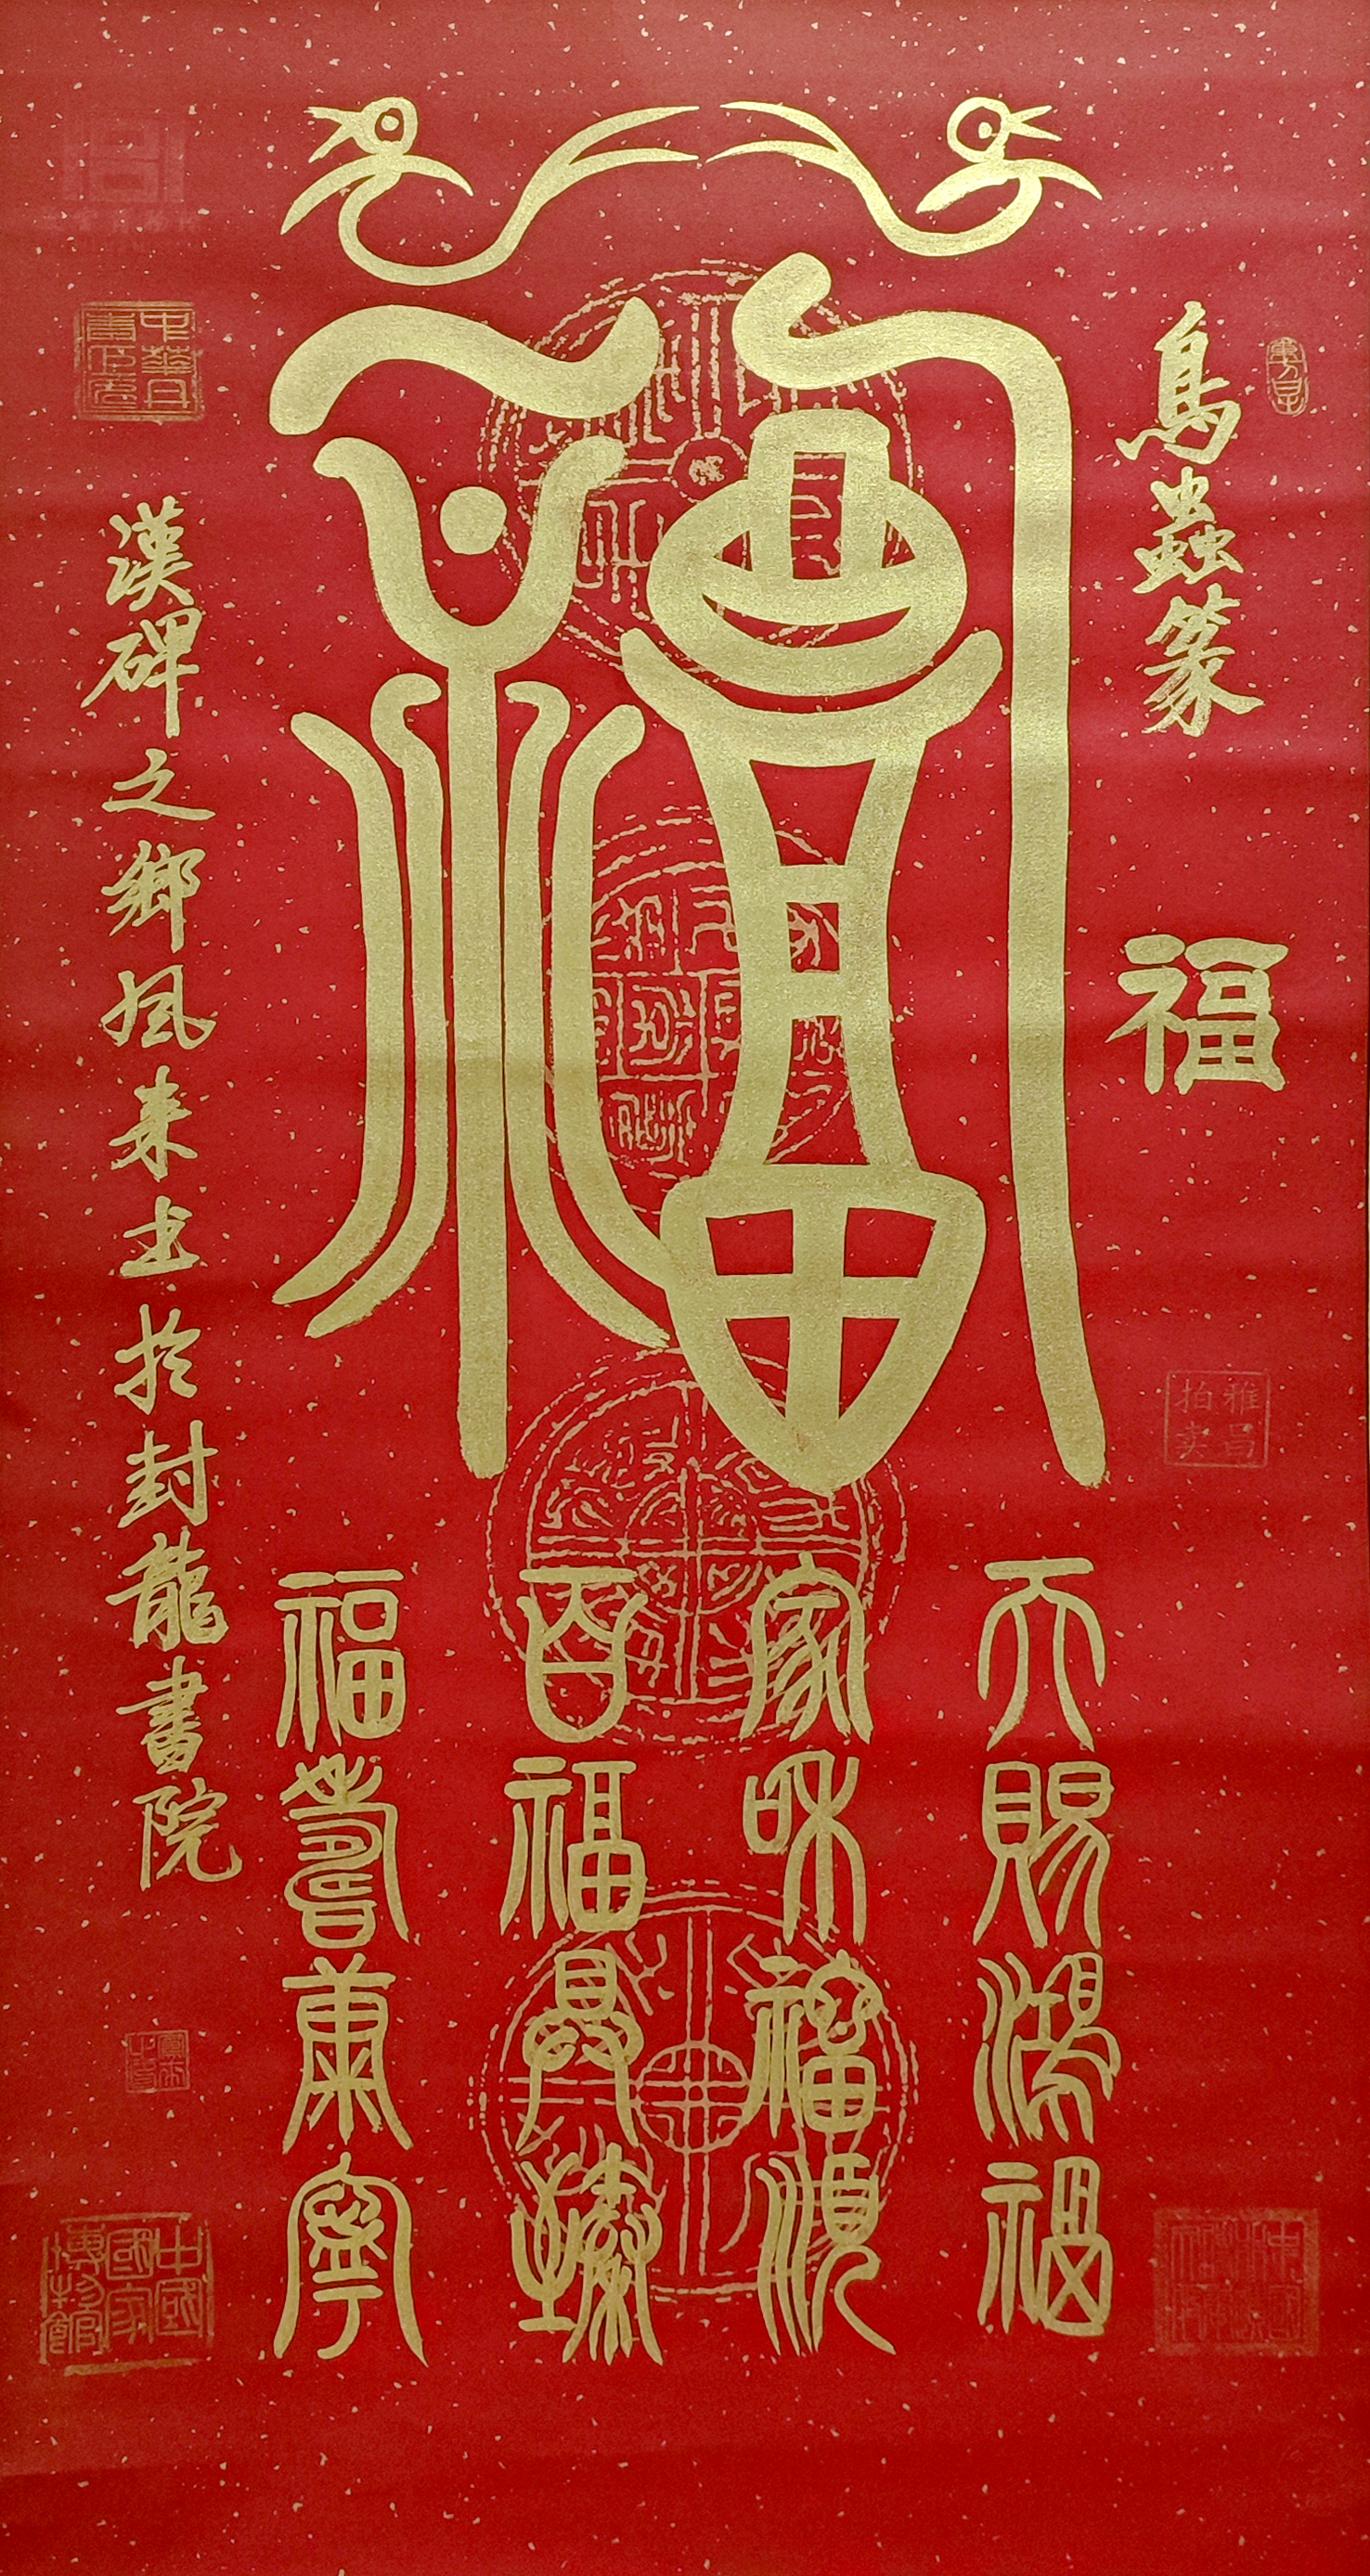 鳥蟲篆 福
福
天賜鴻福
家和福順
百福具臻
福壽康寧
漢碑之鄉風來書於封龍書院
雅昌
拍卖
中國
國家
博物館